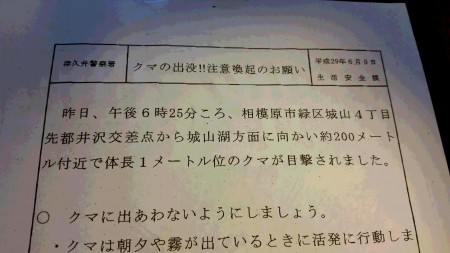 津久井警察署
クマの出没!!注意喚起のお願い
平成29年6月9日
生活安全課
昨日、午後6時25分ころ、相模原市緑区城山4丁目
先都井沢交差点から城山湖方面に向かい約200メート
ル付近で体長1メートル位のクマが目撃されました。
○ クマに出あわないようにしましょう。
・クマは朝夕や霧が出ているときに活発に行動しま